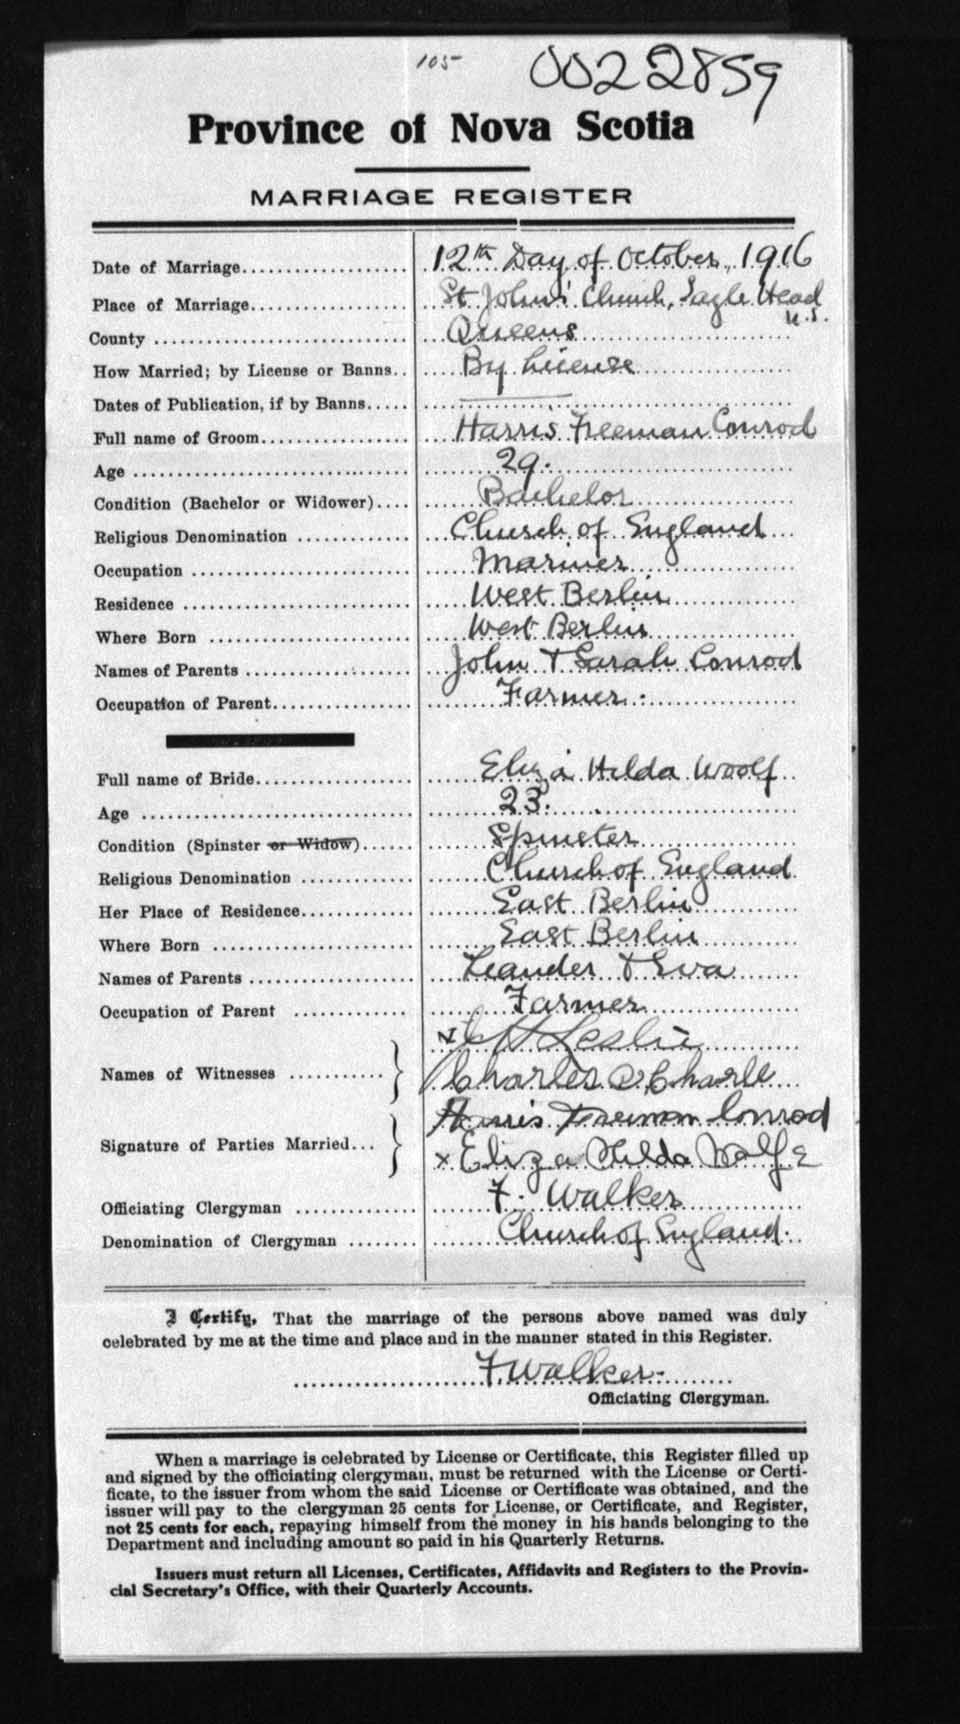 105 0022859
Province of Nova Scotia
MARRIAGE REGISTER
Date of Marriage.................... 12th Day of October, 1916
Place of Marriage.................... St John's' Church, Eagle Head
County .................... Queens N.S.
How Married; by License or Banns.. By License
Dates of Publication, if by Banns..... ———
Full name of Groom.................... Harris Freeman Conrod
Age .................... 29.
Condition (Bachelor or Widower).... Bachelor
Religious Denomination ............. Church of England
Occupation .................... Mariner
Residence .................... West Berlin
Where Born .................... West Berlin
Names of Parents .................... John & Sarah Conrod
Occupation of Parent................ Farmer.
Full name of Bride.................... Eliza Hilda Woolf
Age .................... 23.
Condition (Spinster or Widow)...... Spinster
Religious Denomination ............. Church of England
Her Place of Residence.............. East Berlin
Where Born .................... East Berlin
Names of Parents .................... Leander & Eva
Occupation of Parent ............. Farmer
Leslie
Names of Witnesses ............ Charles
Harris Freeman Conrod
Signature of Parties Married... x Eliza Hilda Wolfe
Officiating Clergyman .............. F. Walker
Denomination of Clergyman ........ Church of England.
I Certify, That the marriage of the persons above named was duly
celebrated by me at the time and place and in the manner stated in this Register.
F. Walker.
Officiating Clergyman.
When a marriage is celebrated by License or Certificate, this Register filled up
and signed by the officiating clergyman, must be returned with the License or Certi-
ficate, to the issuer from whom the said License or Certificate was obtained, and the
issuer will pay to the clergyman 25 cents for License, or Certificate, and Register,
not 25 cents for each, repaying himself from the money in his hands belonging to the
Department and including amount so paid in his Quarterly Returns.
Issuers must return all Licenses, Certificates, Affidavits and Registers to the Provin-
cial Secretary's Office, with their Quarterly Accounts.